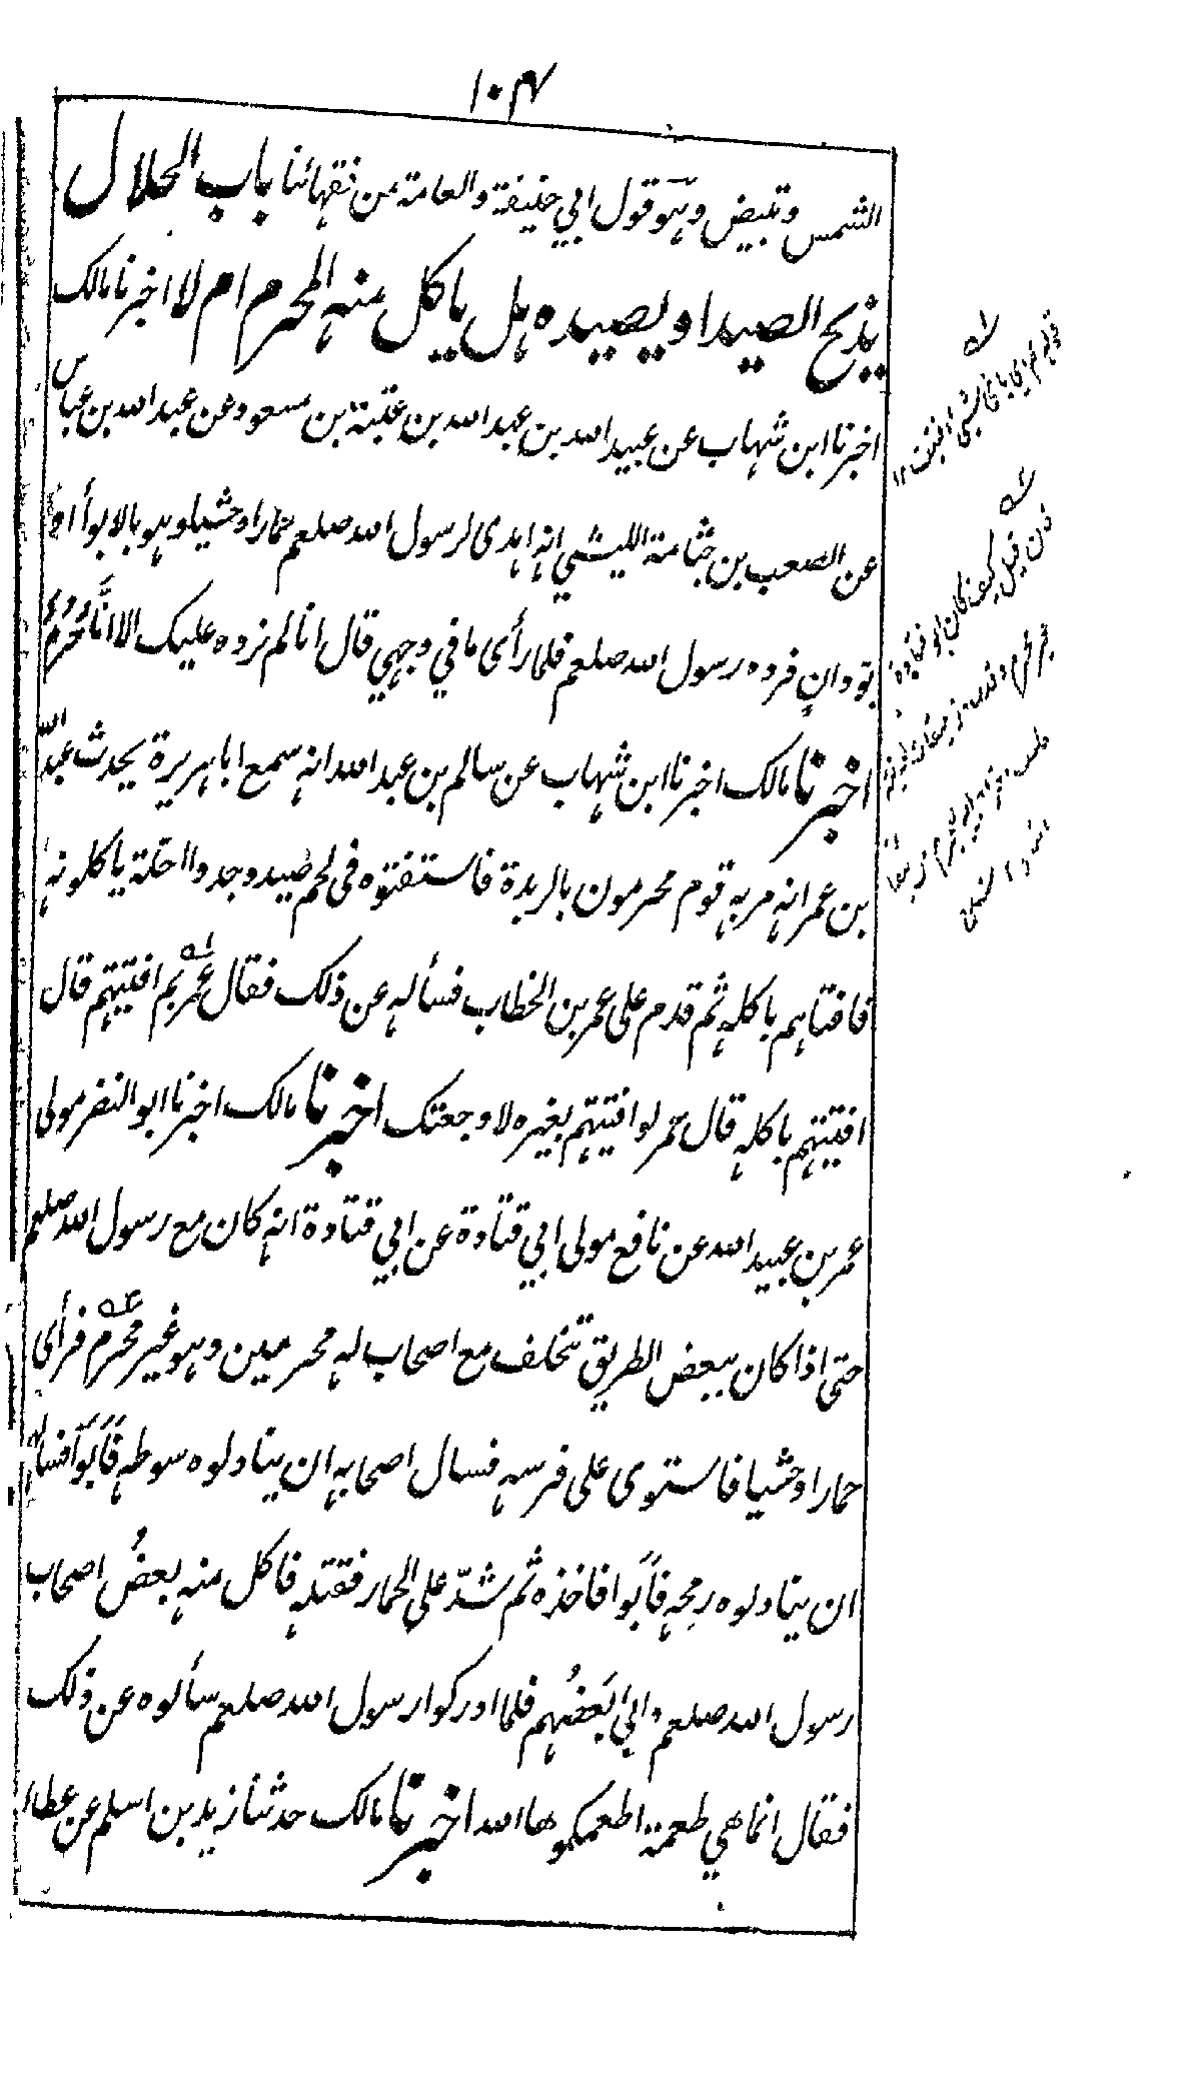 ۱۰۴
الشمس وتبيض وهو قول ابي حنيفة والعامة من فقهائنا باب الحلال
يذبح الصيد او يصيده هل ياكل منه المحرم ام لا اخبرنا مالك
اخبرنا ابن شهاب عن عبيد الله بن عبد الله بن عتبة بن مسعود عن عبد الله بن عباس
عن الصعب بن جثامة الليثي انه اهدى لرسول الله صلعم حمارا وحشيا وهو بالابواء او
بودان فرده رسول الله صلعم فلما رأى ما في وجهي قال انا لم نرده عليك الا انَّا حُرُمٌ
اخبرنا مالك اخبرنا ابن شهاب عن سالم بن عبد الله انه سمع ابا هريرة يحدث عبد الله
بن عمر انه مر به قوم محرمون بالربذة فاستفتوه فى لحم صيد وجدوا احلة ياكلونه
فافتاهم باكله ثم قدم على عمر بن الخطاب فسأله عن ذلك فقال عمر بم افتيتهم قال
افتيتهم باكله قال عمر لو افتيتهم بغيره لاوجعتك اخبرنا مالك اخبرنا ابو النضر مولى
عمر بن عبيد الله عن نافع مولى ابي قتادة عن ابي قتادة انه كان مع رسول الله صلعم
حتى اذا كان ببعض الطريق تخلف مع اصحاب له محرمين وهو غير محرم فرأى
حمارا وحشيا فاستوى على فرسه فسال اصحابه ان يناولوه سوطه فَاَبَوْا فسألهم
ان يناولوه رمحه فَاَبَوا فاخذه ثم شدّ على الحمار فقتله فاكل منه بعضُ اصحاب
رسول الله صلعم وابي بَعضُهم فلما ادركوا رسول الله صلعم سألوه عن ذلك
فقال انما هي طعمة اطعمكموها الله اخبرنا مالك حدثنا زيد بن اسلم عن عطاء
قوله بم اى باى شيئ افتيت ١٢
فان قيل كيف كان ابو قتادة
غير محرم وقد